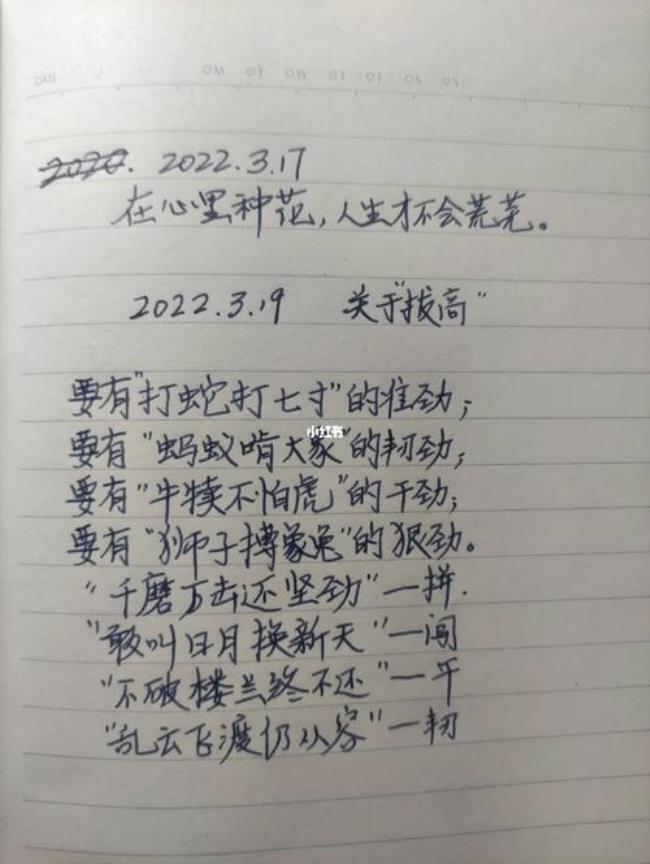 DATE / / MO TU WE TH FR SA SU
2020. 2022.3.17
在心里种花,人生才不会荒芜。
2022.3.19 关于"拔高"
要有"打蛇打七寸"的准劲;
要有"蚂蚁啃大象"的韧劲;
小红书
要有"牛犊不怕虎"的干劲;
要有"狮子搏象兔"的狠劲。
"千磨万击还坚劲"—拼.
"敢叫日月换新天"—闯
"不破楼兰终不还"—干
"乱云飞渡仍从容"—韧